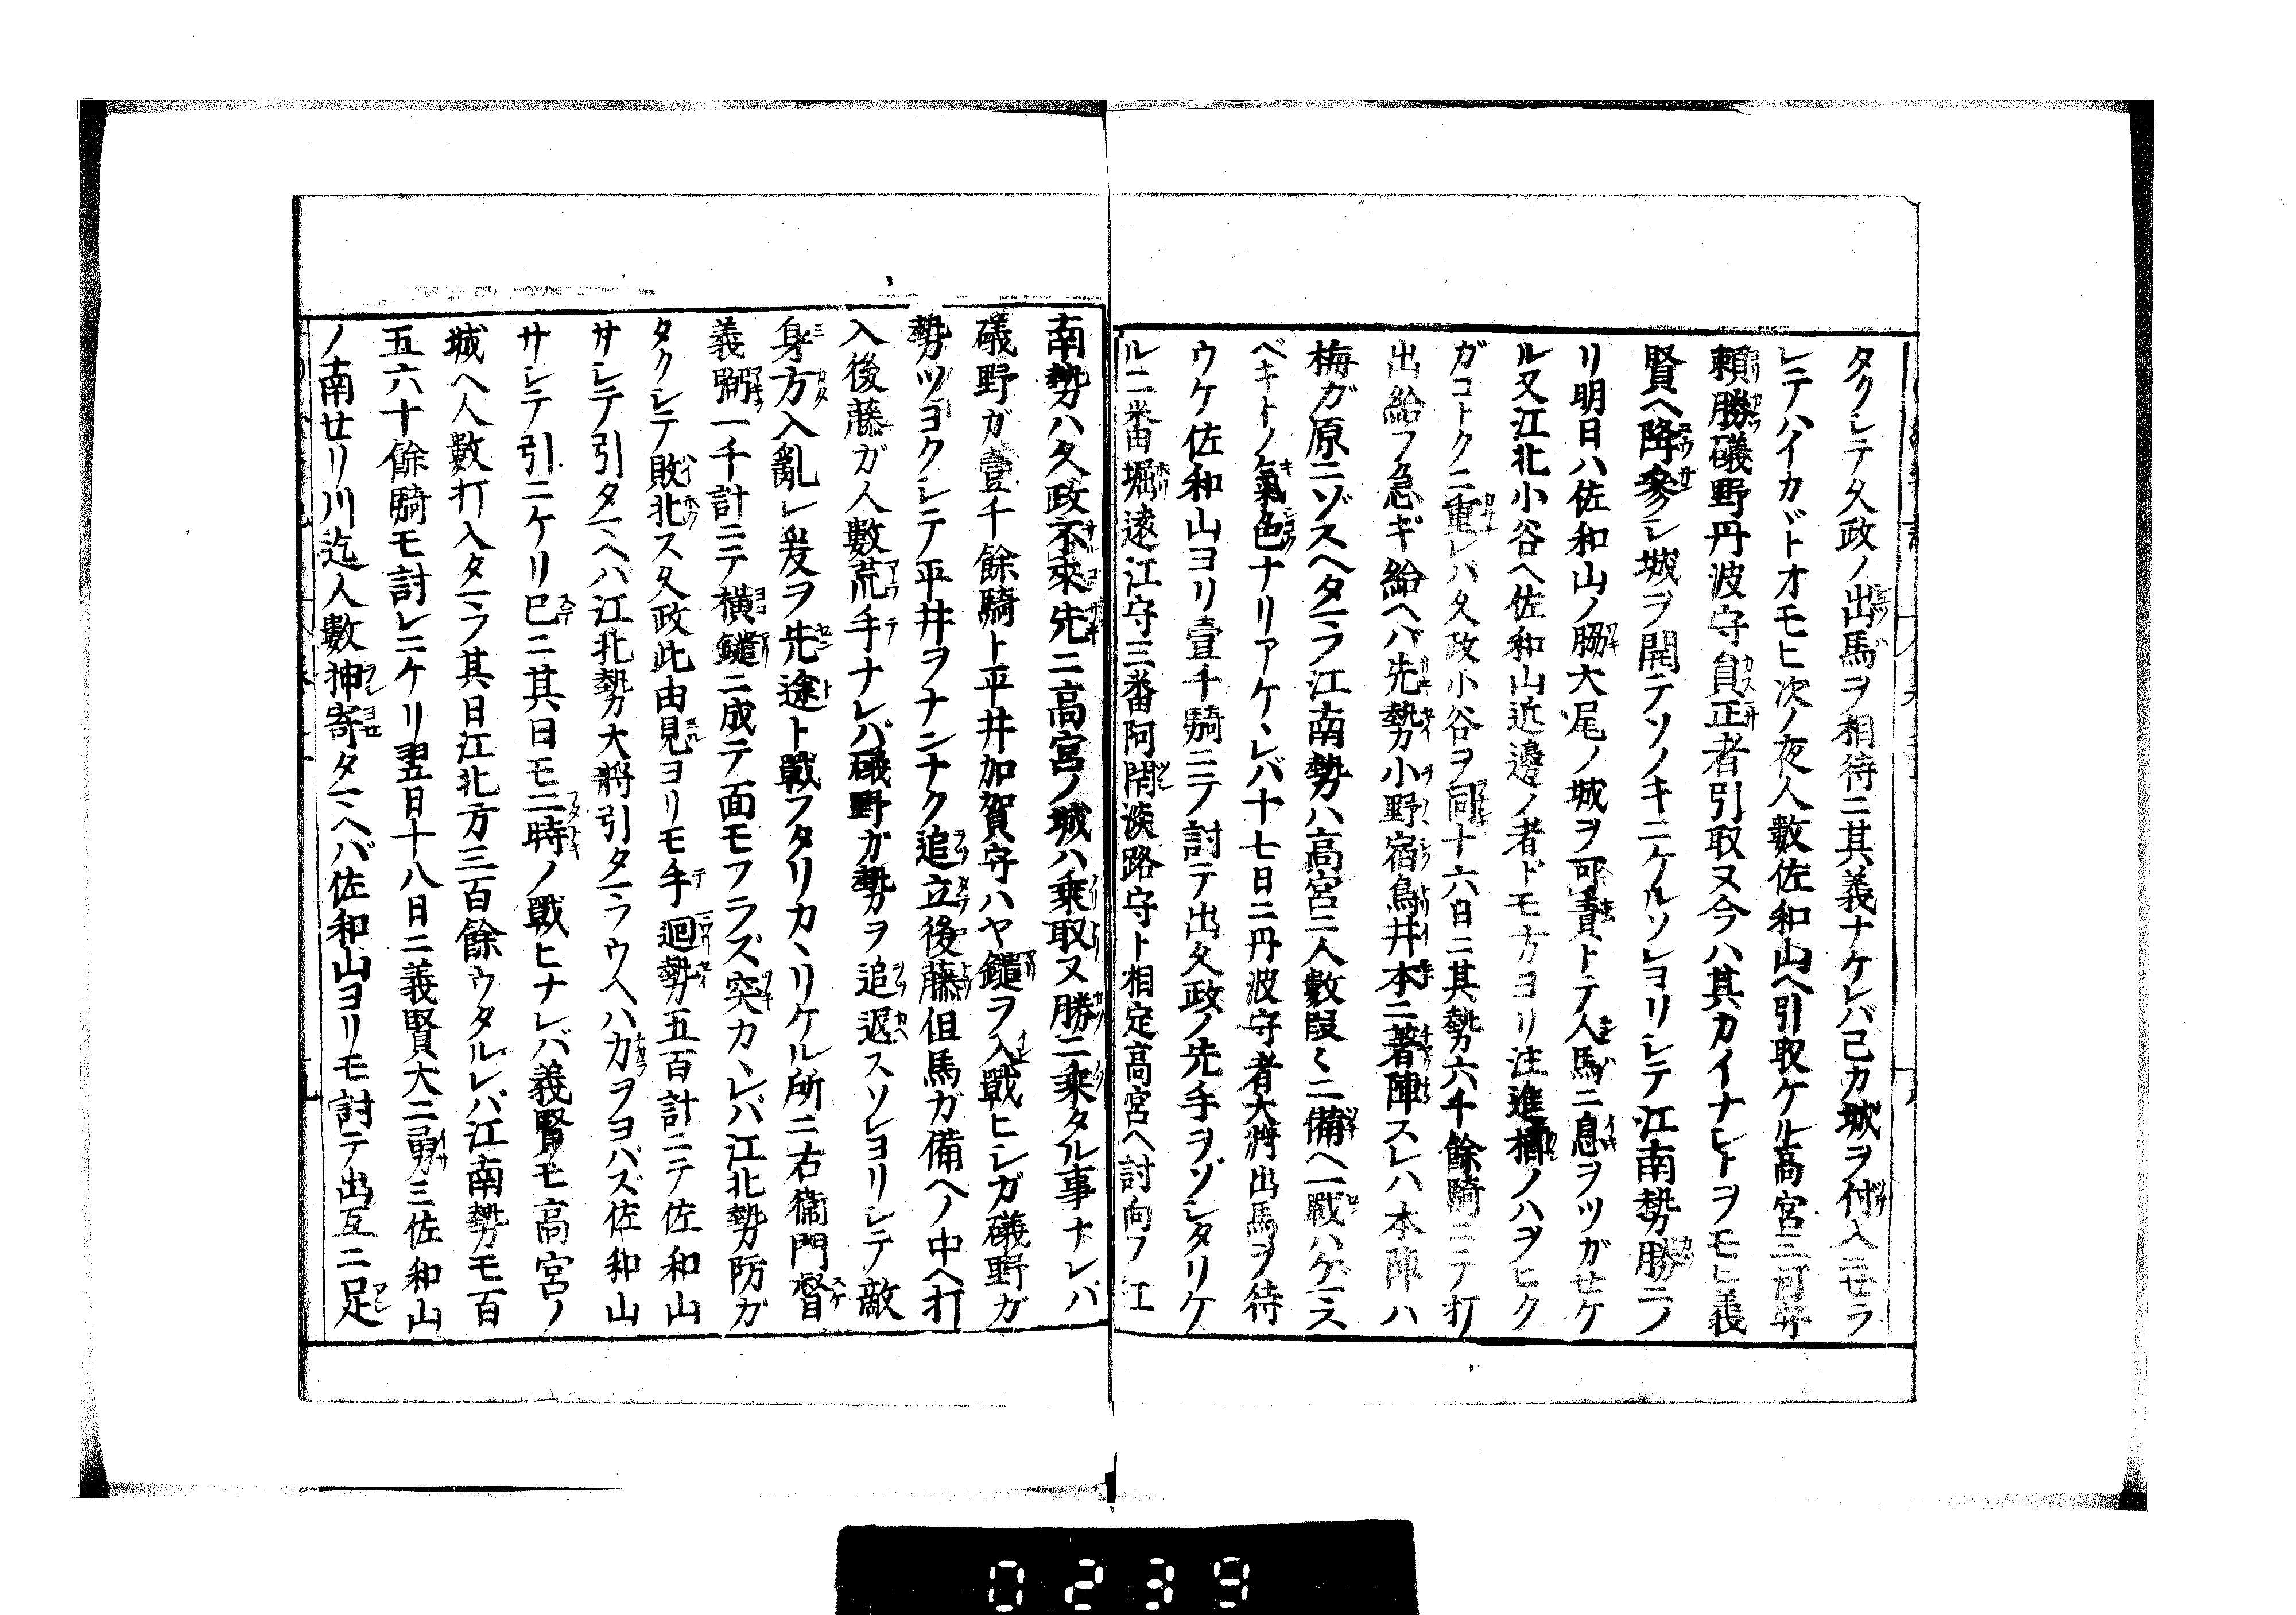 タクレテ久政ノ出馬ヲ相待ニ其義ナケレバ己カ城ヲ付入ニセラ
レテハイカヾトオモヒ次ノ夜人數佐和山ヘ引取ケル高宮三河守
頼勝礒野丹波守員正者引取ヌ今ハ其カイナシトヲモヒ義
賢ヘ降參シ城ヲ開テソノキニケルソレヨリシテ江南勢勝ニノ
リ明日ハ佐和山ノ脇大尾ノ城ヲ可責トテ人馬ニ息ヲツガセケ
ル又江北小谷ヘ佐和山近邊ノ者ドモ方ヨリ注進櫛ノハヲヒク
ガコトクニ重レハ久政小谷ヲ同十六日ニ其勢六千餘騎ニテ打
出給フ急ギ給ヘバ先勢小野宿鳥井本ニ著陣スレハ本陣ハ
梅ガ原ニゾスヘタマフ江南勢ハ高宮ニ人數段〻ニ備ヘ一戰ハゲマス
ベキトノ氣色ナリアケヽレバ十七日ニ丹波守者大將出馬ヲ待
ウケ佐和山ヨリ壹千騎ニテ討テ出久政ノ先手ヲゾシタリケ
ル二番堀遠江守三番阿閉淡路守ト相定高宮ヘ討向フ江
南勢ハ久政不來先ニ高宮ノ城ハ乘取ヌ勝ニ乘タル事ナレバ
礒野ガ壹千餘騎ト平井加賀守ハヤ鑓ヲ入戰ヒシガ礒野ガ
勢ツヨクシテ平井ヲナンナク追立後藤但馬ガ備ヘノ中ヘ打
入後藤ガ人數荒手ナレバ礒野ガ勢ヲ追返スソレヨリシテ敵
身方入亂レ爰ヲ先途ト戰フタリカヽリケル所ニ右衞門督
義弼一千計ニテ橫鑓ニ成テ面モフラズ突カヽレバ江北勢防ガ
タクシテ敗北ス久政此由見ヨリモ手迴勢五百計ニテ佐和山
サシテ引タマヘバ江北勢大將引タマフウヘハカヲヨバズ佐和山
サシテ引ニケリ已ニ其日モ二時ノ戰ヒナレバ義賢モ高宮ノ
城ヘ人數打入タマフ其日江北方三百餘ウタルレバ江南勢モ百
五六十餘騎モ討レニケリ翌日十八日ニ義賢大ニ勇ミ佐和山
ノ南廿リ川迄人數押寄タマヘバ佐和山ヨリモ討テ出互ニ足
0239